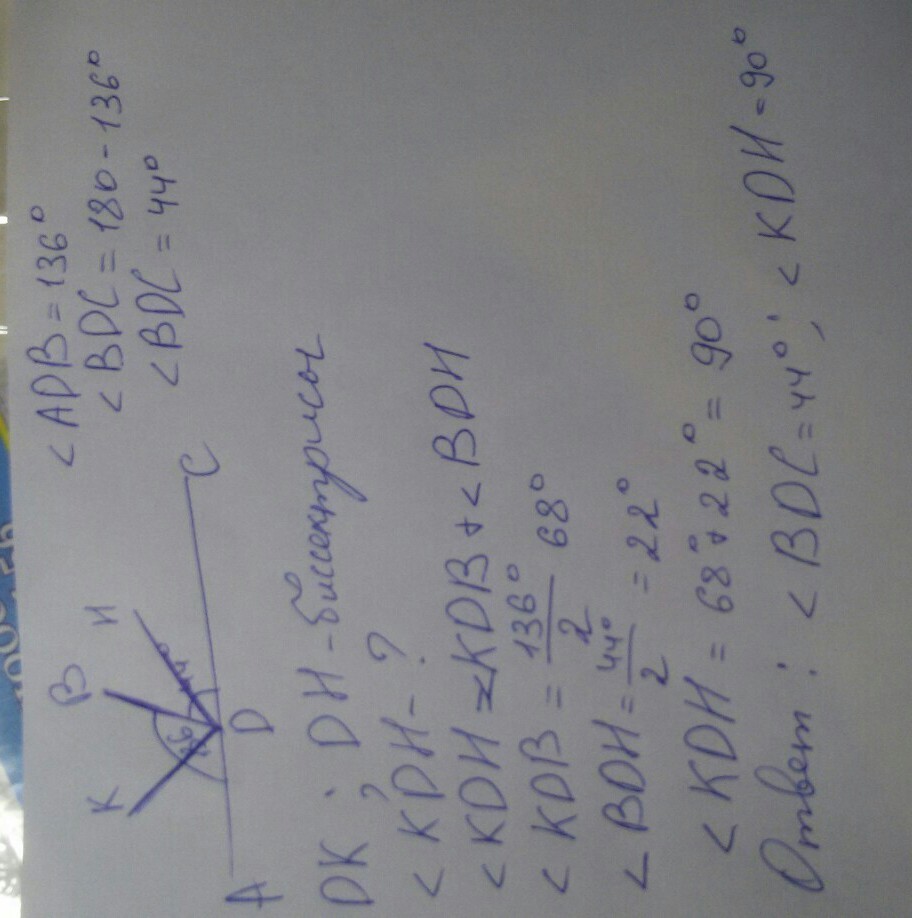 K B H
136 44°
A D C
<ADB = 136°
<BDC = 180 - 136°
<BDC = 44°
DK; DH - биссектрисы
<KDH - ?
<KDH = <KDB + <BDH
<KDB = 136°/2 68°
<BDH = 44°/2 = 22°
<KDH = 68° + 22° = 90°
Ответ: <BDC = 44°; <KDH = 90°